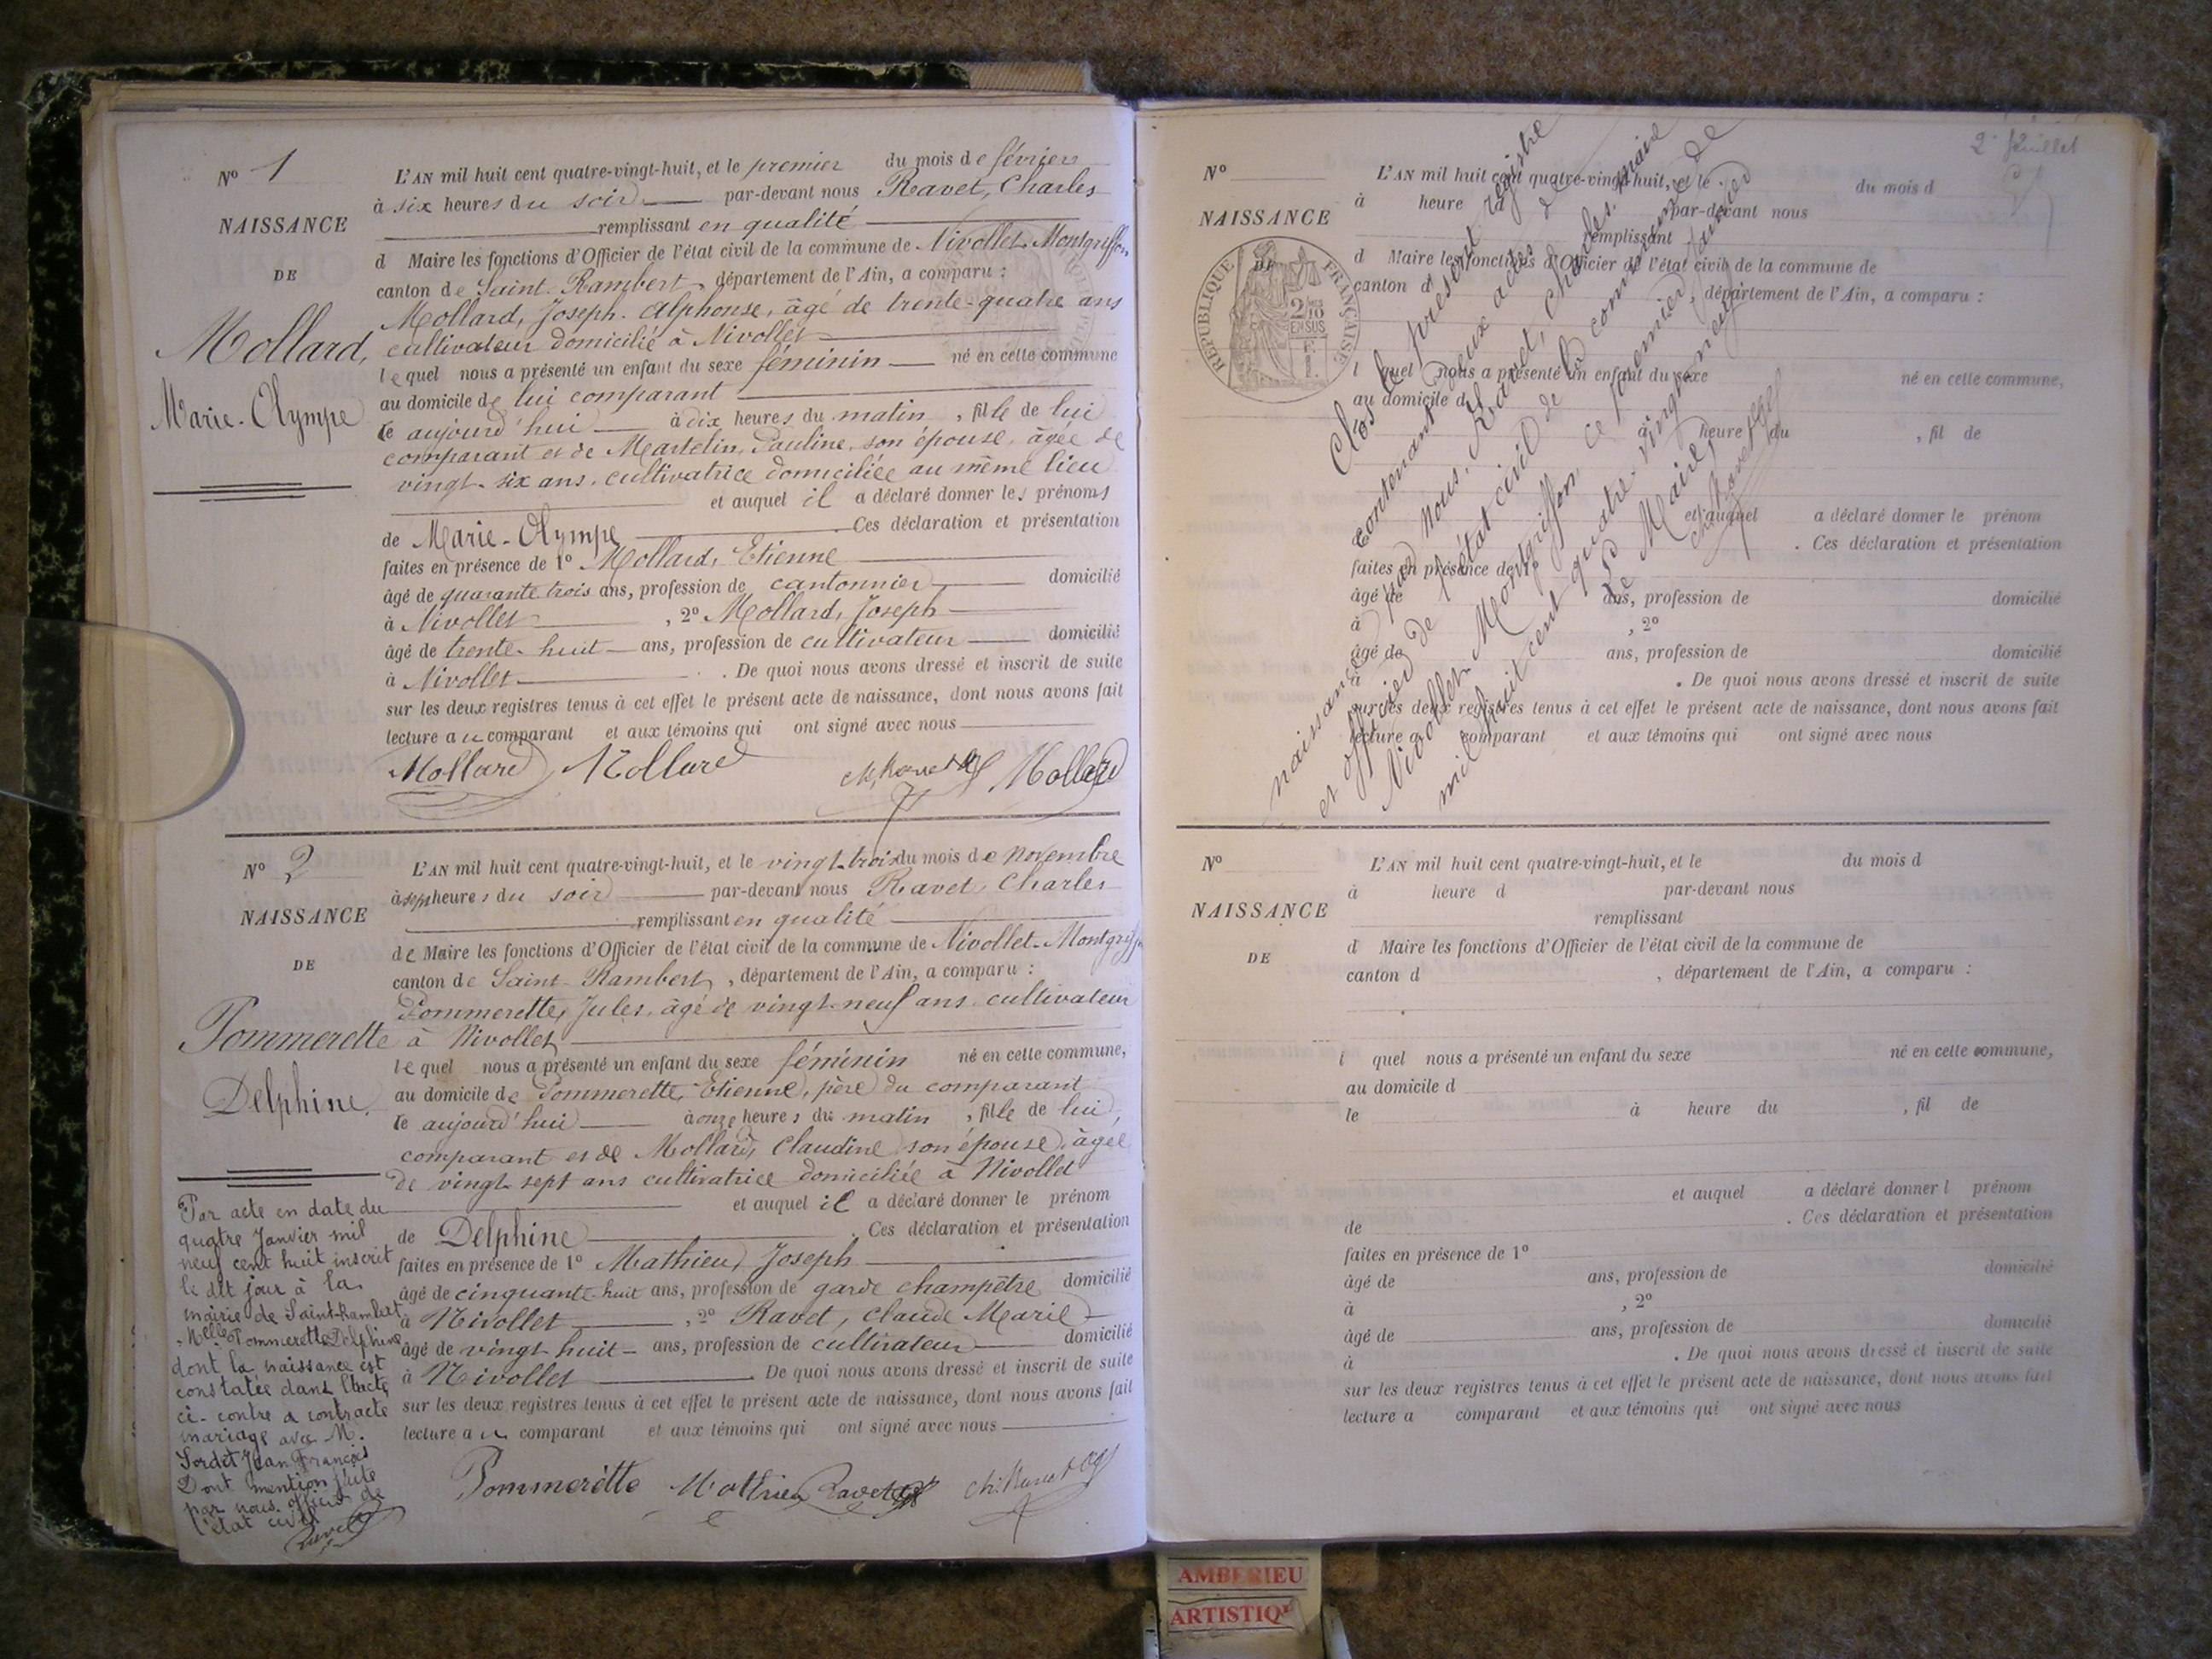 N° 1
NAISSANCE
DE
Mollard,
Marie-Olympe
L'AN mil huit cent quatre-vingt-huit, et le premier du mois de février
à six heures du soir par-devant nous Ravet, Charles
remplissant en qualité
d Maire les fonctions d'Officier de l'état civil de la commune de Nivollet-Montgriffon
canton de Saint-Rambert, département de l'Ain, a comparu :
Mollard, Joseph-Alphonse, âgé de trente-quatre ans
cultivateur domicilié à Nivollet
lequel nous a présenté un enfant du sexe féminin né en cette commune
au domicile de lui comparant
le aujourd'hui à dix heures du matin, fille de lui
comparant et de Martelin, Pauline, son épouse, âgée de
vingt-six ans, cultivatrice domiciliée au même lieu
et auquel il a déclaré donner les prénoms
de Marie-Olympe Ces déclaration et présentation
faites en présence de 1° Mollard, Etienne
âgé de quarante trois ans, profession de cantonnier domicilié
à Nivollet, 2° Mollard, Joseph
âgé de trente-huit ans, profession de cultivateur domicilié
à Nivollet. De quoi nous avons dressé et inscrit de suite
sur les deux registres tenus à cet effet le présent acte de naissance, dont nous avons fait
lecture au comparant et aux témoins qui ont signé avec nous
Mollard Mollard Ch. Ravet Mollard
N° 2
NAISSANCE
DE
Pommerette
Delphine.
L'AN mil huit cent quatre-vingt-huit, et le vingt-trois du mois de Novembre
à sept heures du soir par-devant nous Ravet, Charles
remplissant en qualité
de Maire les fonctions d'Officier de l'état civil de la commune de Nivollet-Montgriffon
canton de Saint-Rambert, département de l'Ain, a comparu :
Pommerette, Jules, âgé de vingt-neuf ans, cultivateur
à Nivollet
lequel nous a présenté un enfant du sexe féminin né en cette commune,
au domicile de Pommerette, Etienne, père du comparant
le aujourd'hui à onze heures du matin, fille de lui,
comparant et de Mollard, Claudine son épouse, âgée
de vingt-sept ans cultivatrice domiciliée à Nivollet
et auquel il a déclaré donner le prénom
de Delphine. Ces déclaration et présentation
faites en présence de 1° Mathieu, Joseph
âgé de cinquante-huit ans, profession de garde champêtre domicilié
à Nivollet, 2° Ravet, Claude Marie
âgé de vingt huit ans, profession de cultivateur domicilié
à Nivollet. De quoi nous avons dressé et inscrit de suite
sur les deux registres tenus à cet effet le présent acte de naissance, dont nous avons fait
lecture au comparant et aux témoins qui ont signé avec nous
Pommerètte Mathieu Ravet Ch. Ravet
Par acte en date du
quatre Janvier mil
neuf cent huit inscrit
le dit jour à la
mairie de Saint-Rambert,
Melle Pommerette Delphine
dont la naissance est
constatée dans l'acte
ci-contre a contracté
mariage avec M.
Sordet Jean François
Dont mention faite
par nous officier de
l'état civil
Ravet
2e feuillet
N°
NAISSANCE
DE
RÉPUBLIQUE FRANÇAISE
2/10 EN SUS
L'AN mil huit cent quatre-vingt-huit, et le du mois d
à heure d par-devant nous
remplissant
d Maire les fonctions d'Officier de l'état civil de la commune de
canton d, département de l'Ain, a comparu :
l quel nous a présenté un enfant du sexe né en cette commune,
au domicile d
à heure du, fil de
et auquel a déclaré donner le prénom
. Ces déclaration et présentation
faites en présence de 1°
âgé de ans, profession de domicilié
à, 2°
âgé de ans, profession de domicilié
à. De quoi nous avons dressé et inscrit de suite
sur les deux registres tenus à cet effet le présent acte de naissance, dont nous avons fait
lecture a comparant et aux témoins qui ont signé avec nous
Clos le présent registre
contenant deux actes de
naissance par nous, Ravet, Charles, maire
et officier de l'état civil de la commune de
Nivollet-Montgriffon, ce premier janvier
mil huit cent quatre-vingt-neuf
Le Maire,
Ch. Ravet
N°
NAISSANCE
DE
L'AN mil huit cent quatre-vingt-huit, et le du mois d
à heure d par-devant nous
remplissant
d Maire les fonctions d'Officier de l'état civil de la commune de
canton d, département de l'Ain, a comparu :
l quel nous a présenté un enfant du sexe né en cette commune,
au domicile d
le à heure du, fil de
et auquel a déclaré donner l prénom
de. Ces déclaration et présentation
faites en présence de 1°
âgé de ans, profession de domicilié
à, 2°
âgé de ans, profession de domicilié
à. De quoi nous avons dressé et inscrit de suite
sur les deux registres tenus à cet effet le présent acte de naissance, dont nous avons fait
lecture a comparant et aux témoins qui ont signé avec nous
AMBERIEU
ARTISTIQUE